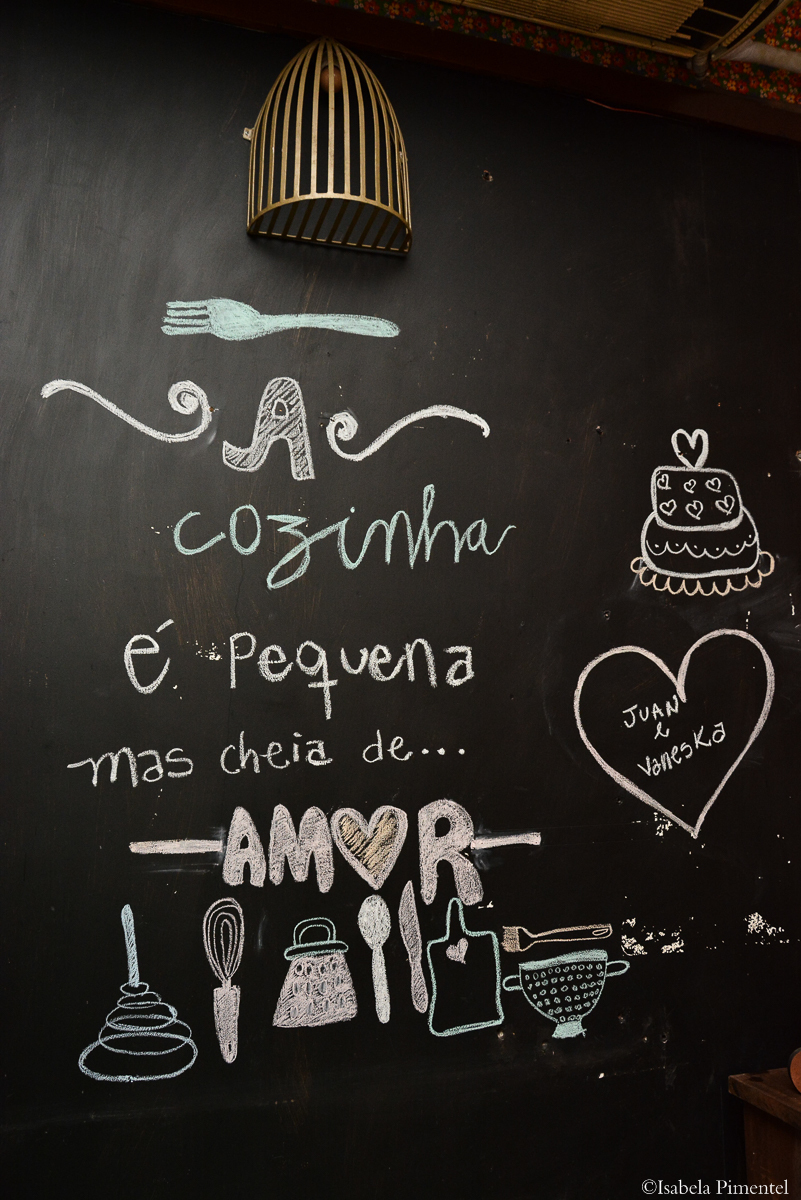 A
cozinha
é pequena
mas cheia de...
AMOR
JUAN
e
VANESKA
©Isabela Pimentel